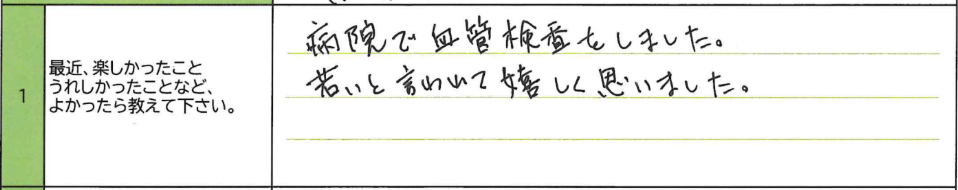 病院で血管検査をしました。
若いと言われて嬉しく思いました。
1
最近、楽しかったこと
うれしかったことなど、
よかったら教えて下さい。